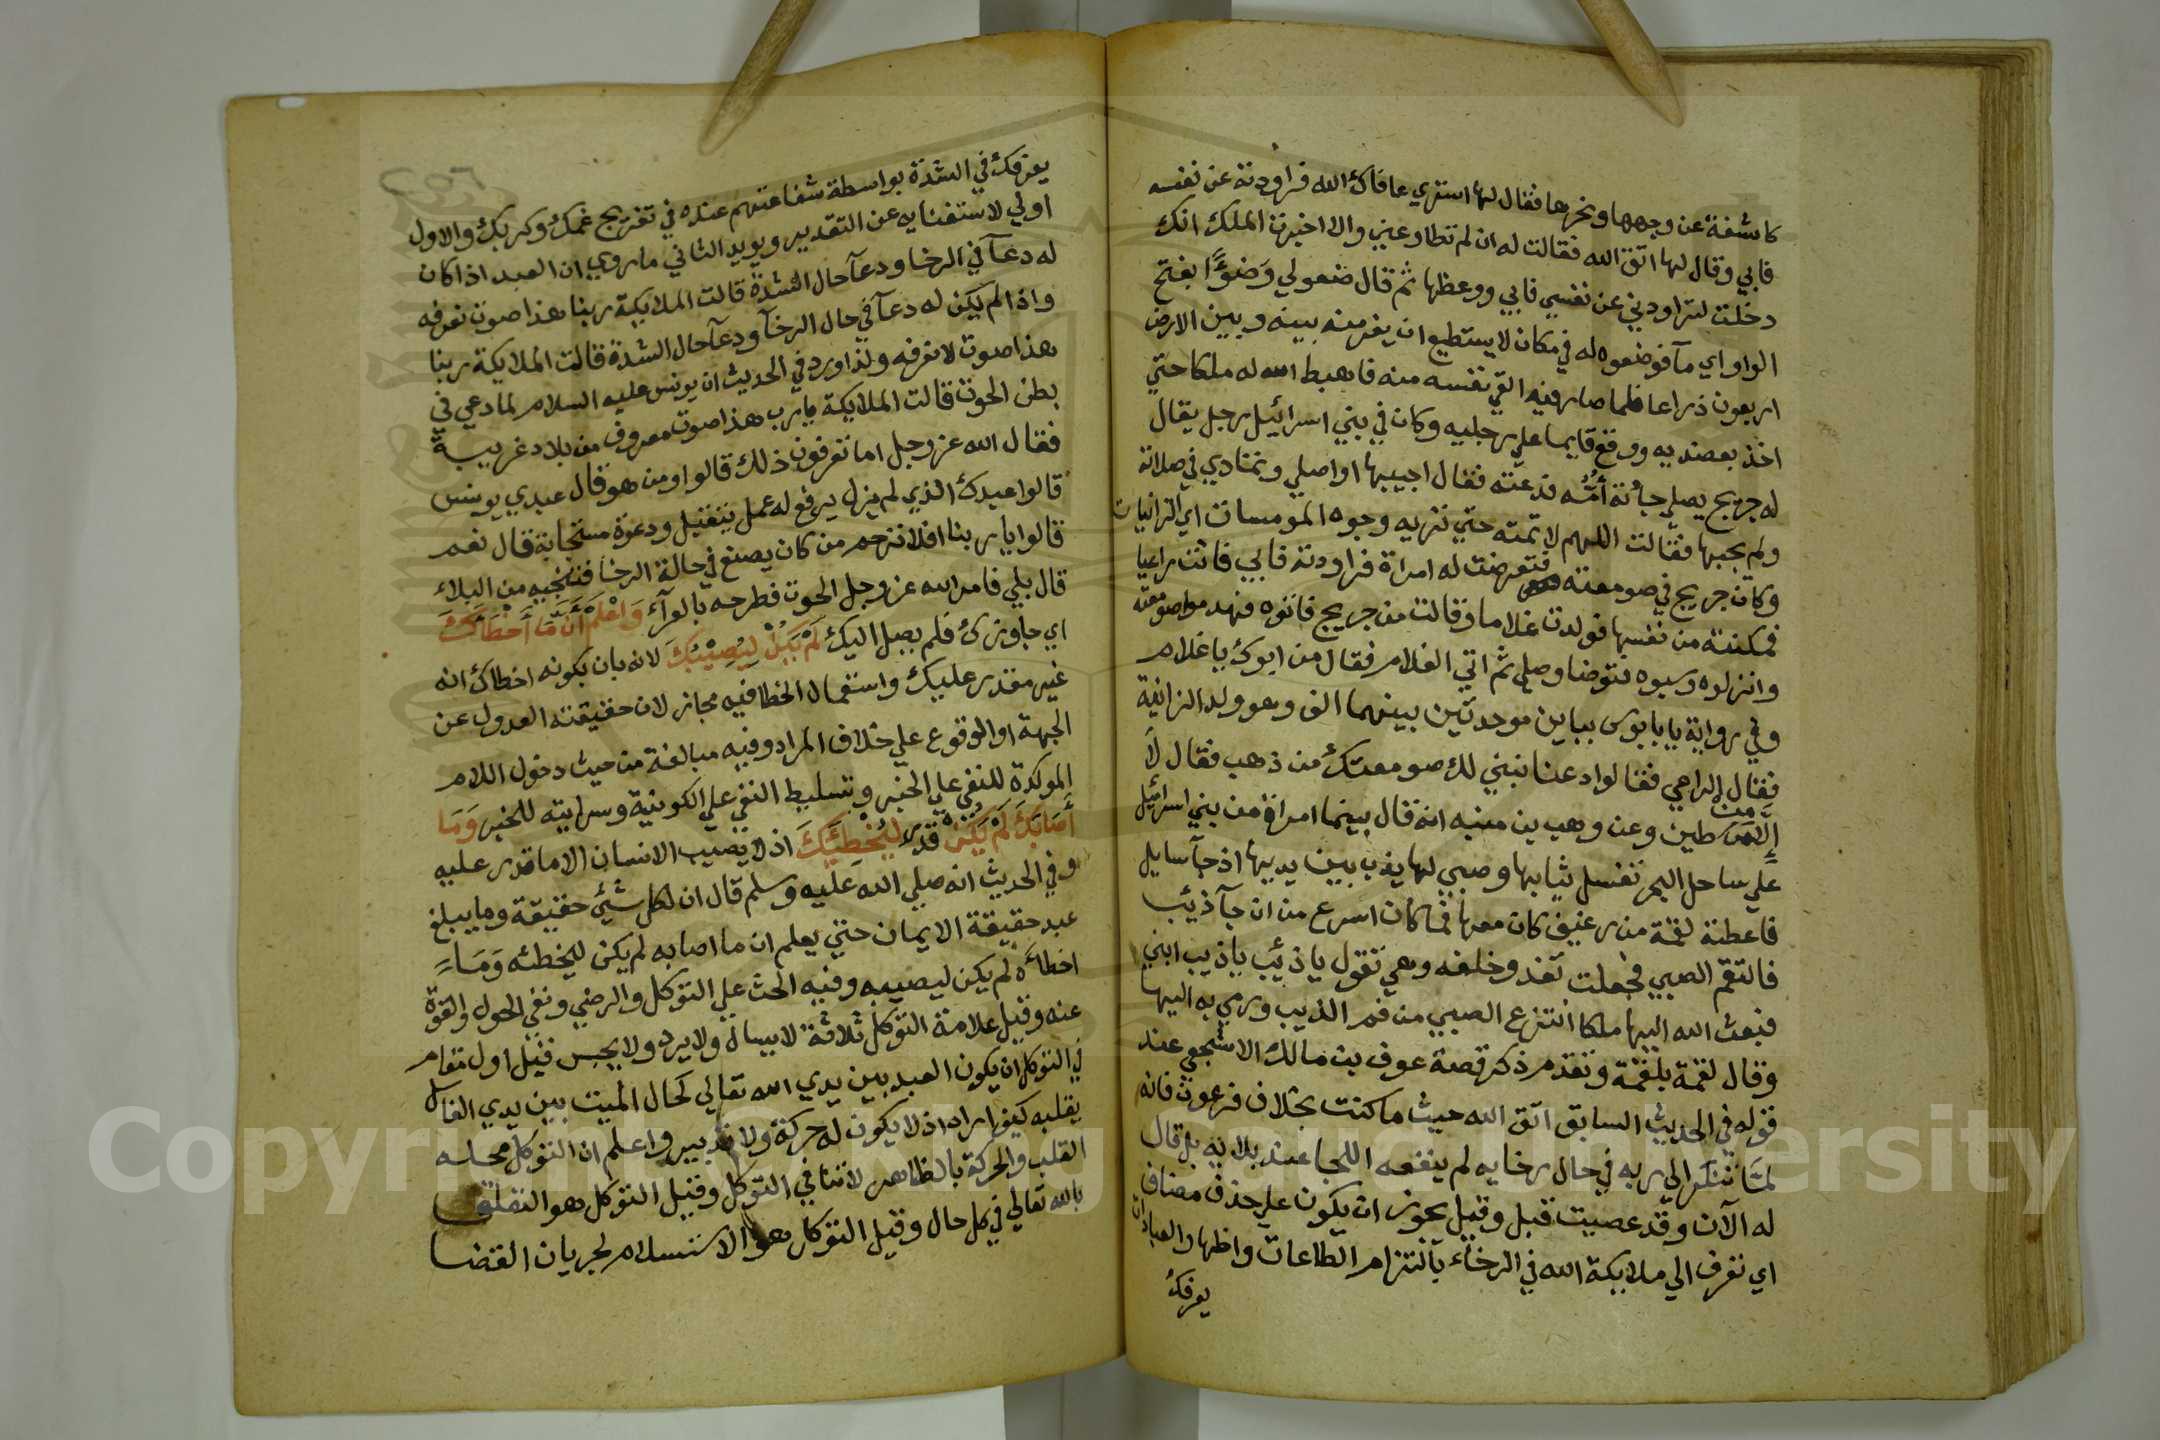 كاشفة عن وجهها ونحرها فقال لها استري عافاك الله فراودته عن نفسه
فابي وقال لها اتق الله فقالت له ان لم تطاوعني والا اخبرت الملك انك
دخلت لتراودني عن نفسي فابي ووعظها ثم قال ضعولي وَضوءًا بفتح
الواو اي مآ فوضعوه له في مكان لا يستطيع ان يفر منه بينه وبين الارض
اربعون ذراعا فلما صار فيه القي نفسه منه فاهبط الله له ملكا حتي
اخذ بعضديه ووقع قايما علي رجليه وكان في بني اسرائيل رجل يقال
له جريج يصلي جأته أمُّه فدعته فقال اجيبها او اصلي وتمادي في صلاته
ولم يجبها فقالت اللهم لا تمته حتي تريه وجوه المومسات اي الزانيات
وكان جريج في صومعته فتعرضت له امراة فراودته فابي فاتت راعيا
فمكنته من نفسها فولدت غلاما وقالت من جريج فاتوه فهدموا صومعته
وانزلوه وسبوه فتوضا وصلي ثم اتي الغلام فقال من ابوك ياغلام
وفي رواية يابابوس بباين موحدتين بينهما الف وهو ولد الزانية
فقال الراعي فقالوا دعنا نبني لك صومعتك من ذهب فقال لا
إلا من طين وعن وهب بن منبه انه قال بينما امراة من بني اسرائيل
علي ساحل البحر تغسل ثيابها وصبي لها يدب بين يديها اذ جآ سايل
فاعطته لقمة من رغيف كان معها فما كان اسرع من ان جآ ذئب
فالتقم الصبي فجعلت تعدو خلفه وهي تقول يا ذئب يا ذيب ابني
فبعث الله اليها ملكا انتزع الصبي من فم الذيب ورمي به اليها
وقال لقمة بلقمة وتقدم ذكر قصة عوف بن مالك الاشجعي عند
قوله في الحديث السابق اتق الله حيث ما كنت بخلاف فرعون فانه
لما تنكر الي ربه في حال رخايه لم ينفعه اللجا عند بلايه بل قال
له الآن وقد عصيت قبل وقيل يجوز ان يكون علي حذف مضاف
اي تعرف الي ملايكة الله في الرخاء بالتزام الطاعات واظهار العبادات
يعرفك
يعرفك في الشدة بواسطة شفاعتهم عنده في تفريج غمك وكربك والاول
اولي لاستغنايه عن التقدير ويويد الثاني ماروي ان العبد اذا كان
له دعآ في الرخا ودعآ حال الشدة قالت الملايكة ربنا هذا صوت نعرفه
واذا لم يكن له دعآ في حال الرخآ ودعآ حال الشدة قالت الملايكة ربنا
هذا صوت لا نعرفه ولذا ورد في الحديث ان يونس عليه السلام لما دعي في
بطن الحوت قالت الملايكة يارب هذا صوت معروف من بلاد غريبة
فقال الله عز وجل اما تعرفون ذلك قالوا ومن هو قال عبدي يونس
قالوا عبدك الذي لم يزل يرفع له عمل يتقبل ودعوة مستجابة قال نعم
قالوا يا ربنا افلا ترحم من كان يصنع في حالة الرخا فتنجيه من البلاء
قال بلي فامر الله عز وجل الحوت فطرحه بالعرآء وَاعْلَمْ أَنَّ مَا أَخْطَأَكَ
اي جاوزك فلم يصل اليك لَمْ يَكُنْ لِيُصِيْبَكَ لانه بان بكونه اخطاك انه
غير مقدر عليك واستعمال الخطا فيه مجاز لان حقيقته العدول عن
الجهة او الوقوع علي خلاف المراد وفيه مبالغة من حيث دخول اللام
الموكدة للنفي علي الخبر وتسليط النفي علي الكونية وسرايته للخبر وَمَا
أَصَابَكَ لَمْ يَكُنْ قدر لِيُخْطِئَكَ اذ لا يصيب الانسان الا ما قدر عليه
وفي الحديث انه صلي الله عليه وسلم قال ان لكل شيئ حقيقة وما يبلغ
عبد حقيقة الايمان حتي يعلم ان ما اصابه لم يكن ليخطئه وَمَا
اخطأه لم يكن ليصيبه وفيه الحث علي التوكل والرضي ونفي الحول والقوة
عنه وقيل علامة التوكل ثلاثة لا يسال ولا يرد ولا يحبس قيل اول مقام
في التوكل ان يكون العبد بين يدي الله تعالي كحال الميت بين يدي الغاسل
يقلبه كيف اراد اذ لا يكون له حركة ولا تدبير واعلم ان التوكل محله
القلب والحركة بالظاهر لا تنافي التوكل وقيل التوكل هو التعلق
بالله تعالي في كل حال وقيل التوكل هو الاستسلام لجريان القضا
Copyright © King Saud University